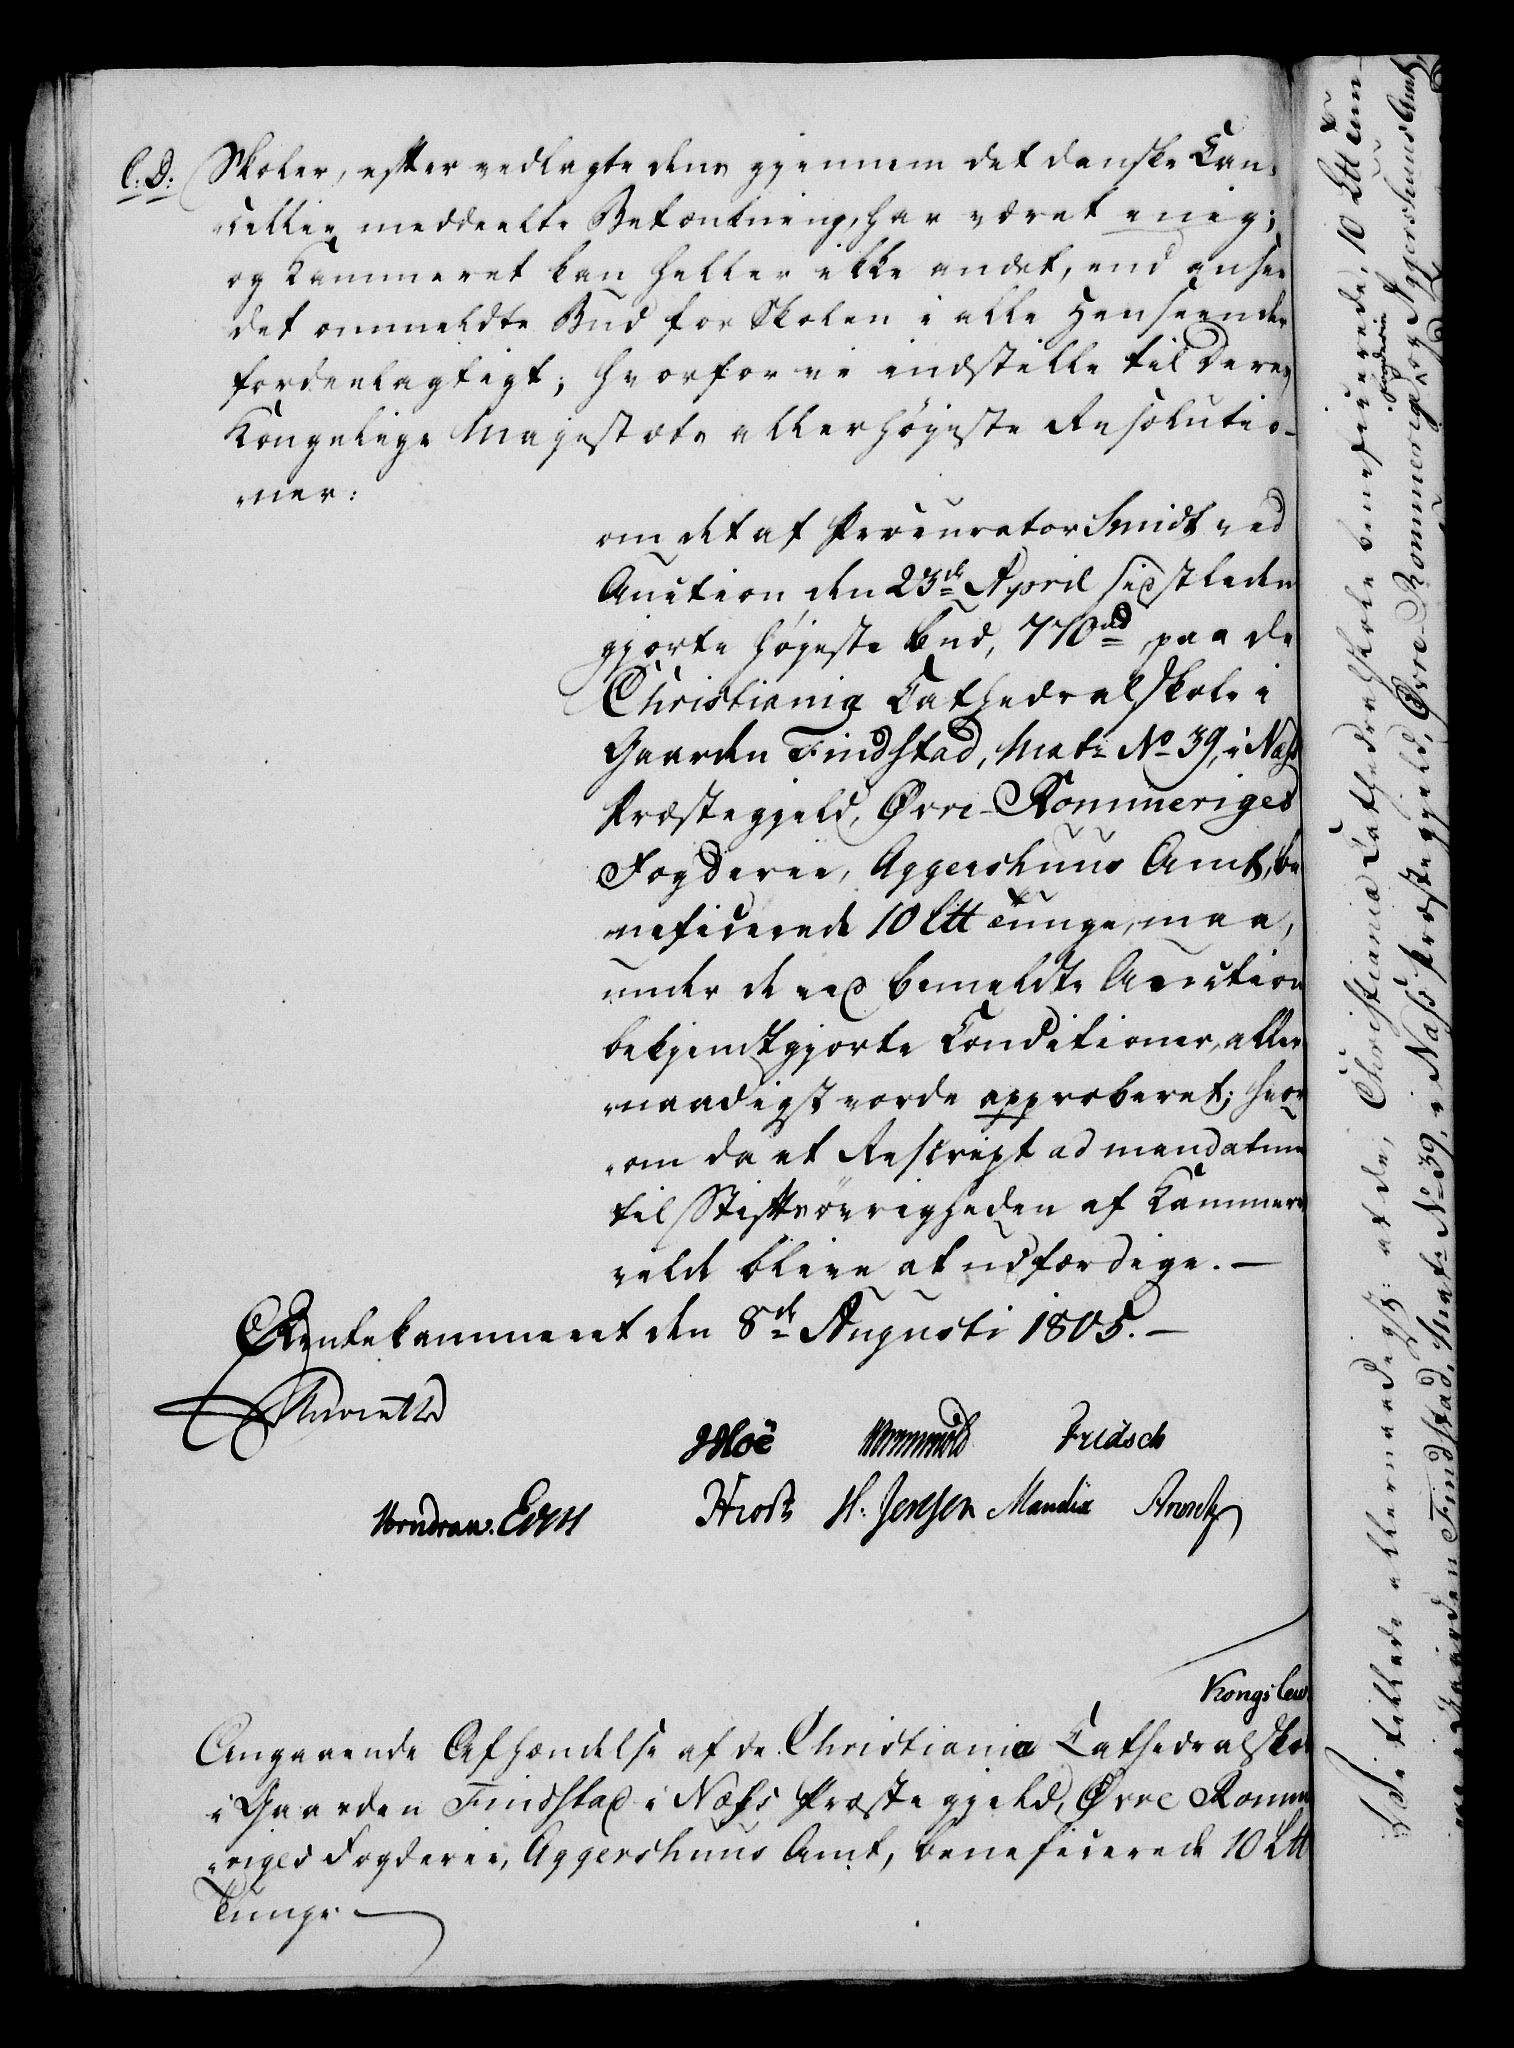 C: D:
Skoler, efter vedlagte dens gjennem det danske Can-
cellie meddeelte Betænkning, har været enig;
og Kammeret kan heller ikke andet, end ansee
det ommeldte Bud for Skolen i alle Henseender
fordeelagtigt; hvorfor vi indstille til Deres
Kongelige Majestæts allerhøjeste Resolutio-
ner:
om det af Procurator Smidt ved
Auction den 23de April sidstleden
gjorte højeste Bud, 770 rd paa de
Christiania Cathedralskole i
Gaarden Findstad, Matr No 39, i Næss
Præstegjeld, Øvre-Rommeriges
Fogderie, Aggershuus Amt, be
neficerede 10 Ltt Tunge, maa,
under de ved bemeldte Auction
bekjendtgjorte Conditioner, aller
naadigst vorde approberet; hvor
om da et Rescript ad mandatum
til Stiftsøvrigheden af Kammeret
vilde blive at udfærdige. —
Rentekammeret den 8de Augusti 1805. —
Hoë Wormskiold Fridsch
Hirsts H: Jensen Mandix Arnoldt
Kongslew
Angaaende Afhændelse af de Christiania Cathedralskole
i Gaarden Findstad i Næss Præstegjeld, Øvre Romme
riges Fogderie, Aggershuus Amt, beneficerede 10 Ltt
Tunge.
indstillede allernaadigst: at de, Christiania Cathedralskole beneficerede, 10 Ltt Tun-
ge i Gaarden Findstad, Matr No 39, i Næss Præstegjeld, Øvre-Rommeriges Fogderie Aggershuus Amt,